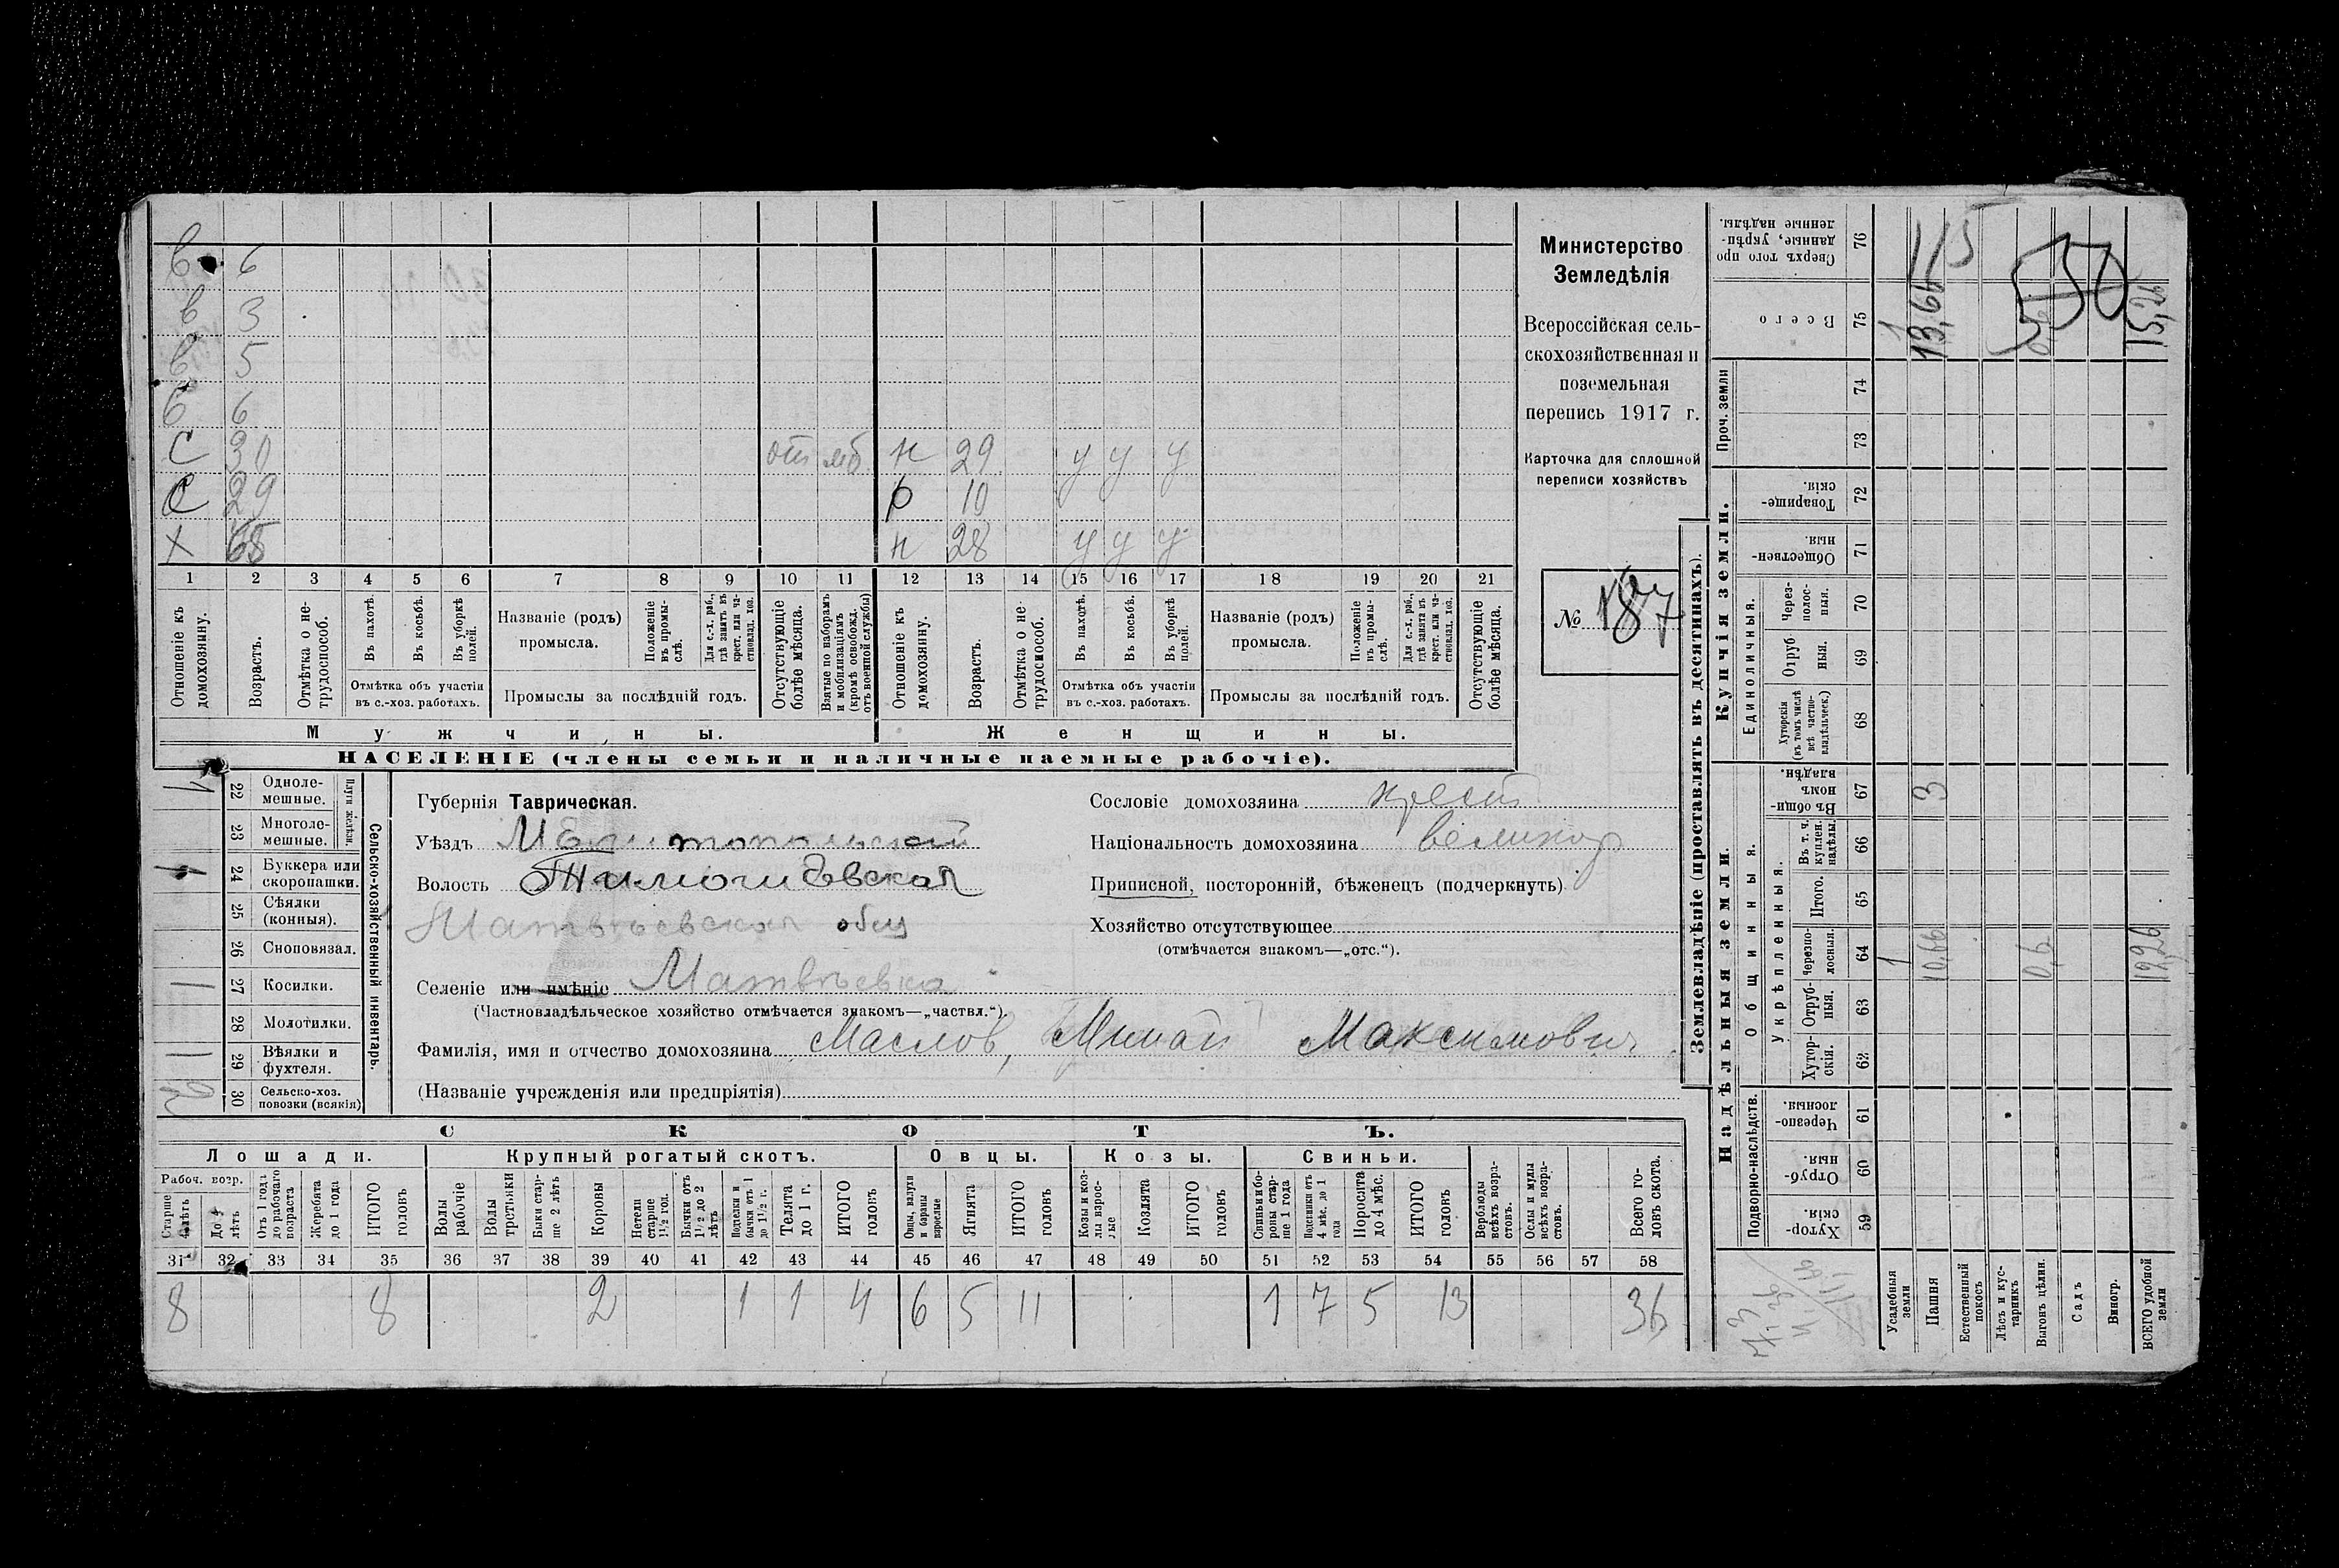 в 6
в 3
в 5
б 6
С 30 от мб н 29 у у у
С 29 р 10
х 68 н 28 у у у
1 2 3 4 5 6 7 8 9 10 11 12 13 14 15 16 17 18 19 20 21
Отношеніе къ домохозяину.
Возрастъ.
Отмѣтка о не-трудоспособ.
Въ пахотѣ.
Въ косьбѣ.
Въ уборкѣ полей.
Отмѣтка объ участіи
въ с.-хоз. работахъ.
Названіе (родъ)
промысла.
Положеніе въ промы-слѣ.
Для с.-х. раб., гдѣ занятъ въ крест. или ча-стновлад. хоз.
Промыслы за послѣдній годъ.
Отсутствующіе болѣе мѣсяца.
Взятые по наборамъ и мобилизаціямъ (кромѣ освобожд. отъ военной службы)
Отношеніе къ домохозяину.
Возрастъ.
Отмѣтка о не-трудоспособ.
Въ пахотѣ.
Въ косьбѣ.
Въ уборкѣ полей.
Отмѣтка объ участіи
въ с.-хоз. работахъ.
Названіе (родъ)
промысла.
Положеніе въ промы-слѣ.
Для с.-х. раб., гдѣ занята въ крест. или ча-стновлад. хоз.
Промыслы за послѣдній годъ.
Отсутствующіе болѣе мѣсяца.
Мужчины. Женщины.
НАСЕЛЕНІЕ (члены семьи и наличные наемные рабочіе).
Министерство
Земледѣлія
Всероссійская сель-
скохозяйственная и
поземельная
перепись 1917 г.
Карточка для сплошной
переписи хозяйствъ
№ 187
Сельско-хозяйственный инвентарь.
Плуги желѣзн.
1 22 Одноле-мешные.
23 Многоле-мешные.
1 24 Буккера или скоропашки.
25 Сѣялки (конныя).
26 Сноповязал.
1 27 Косилки.
28 Молотилки.
1 29 Вѣялки и фухтеля.
2 30 Сельско-хоз. повозки (всякія)
Губернія Таврическая.
Уѣздъ Мелитопольскій
Волость Тимошевская
Матвѣевская общ
Селеніе или имѣніе Матвѣевка
(Частновладѣльческое хозяйство отмѣчается знакомъ—„частвл.“).
Фамилія, имя и отчество домохозяина Маслов, Минай Максимович
(Названіе учрежденія или предпріятія)
Сословіе домохозяина крест
Національность домохозяина великор
Приписной, посторонній, бѣженецъ (подчеркнуть)
Хозяйство отсутствующее
(отмѣчается знакомъ—„отс.“).
СКОТЪ.
Лошади. Крупный рогатый скотъ. Овцы. Козы. Свиньи.
Рабоч. возр.
Старше 4 лѣтъ
До 4 лѣтъ
Отъ 1 года до рабочаго возраста
Жеребята до 1 года
ИТОГО головъ
Волы рабочіе
Волы третьяки
Быки стар-ше 2 лѣтъ
Коровы
Нетели старше 1½ год.
Бычки отъ 1½ до 2 лѣтъ
Подтелки и бычки отъ 1 до 1½ г.
Телята до 1 г.
ИТОГО головъ
Овцы, валухи и бараны взрослые
Ягнята
ИТОГО головъ
Козы и коз-лы взрос-лые
Козлята
ИТОГО головъ
Свиньи и бо-ровы стар-ше 1 года
Подсвинки отъ 4 мѣс. до 1 года
Поросята до 4 мѣс.
ИТОГО головъ
Верблюды всѣхъ возра-стовъ.
Ослы и мулы всѣхъ возра-стовъ.
Всего го-ловъ скота.
31 32 33 34 35 36 37 38 39 40 41 42 43 44 45 46 47 48 49 50 51 52 53 54 55 56 57 58
8 8 2 1 1 4 6 5 11 1 7 5 13 36
Землевладѣніе (проставлять въ десятинахъ).
Надѣльныя земли. Купчія земли.
Подворно-наслѣдств. Общинныя. Единоличныя. Проч. земли
Укрѣпленныя.
Хутор-скія. 59
Отруб-ныя. 60
Черезпо-лосныя. 61
Хутор-скія. 62
Отруб-ныя. 63
Черезпо-лосныя. 64
Итого. 65
Въ т. ч. куплен. надѣлы. 66
Въ общи-номъ владѣн. 67
Хуторскія (въ томъ числѣ всѣ частно-владѣльческ.) 68
Отруб ныя. 69
Через-полос-ныя. 70
Обществен-ныя. 71
Товарище-скія. 72
73
74
Всего 75
Сверхъ того про данные, укрѣп-ленные надѣлы. 76
Усадебныя земли 1 1
Пашня 10,66 3 13,66 115
Естественный покосъ
Лѣсъ и кус-тарникъ
Выгонъ цѣлин. 0,6 30
Садъ
Виногр.
ВСЕГО удобной земли 12,26 15,26